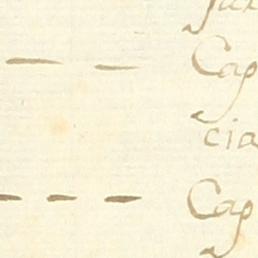 — — Cap
cia
— — — Cap